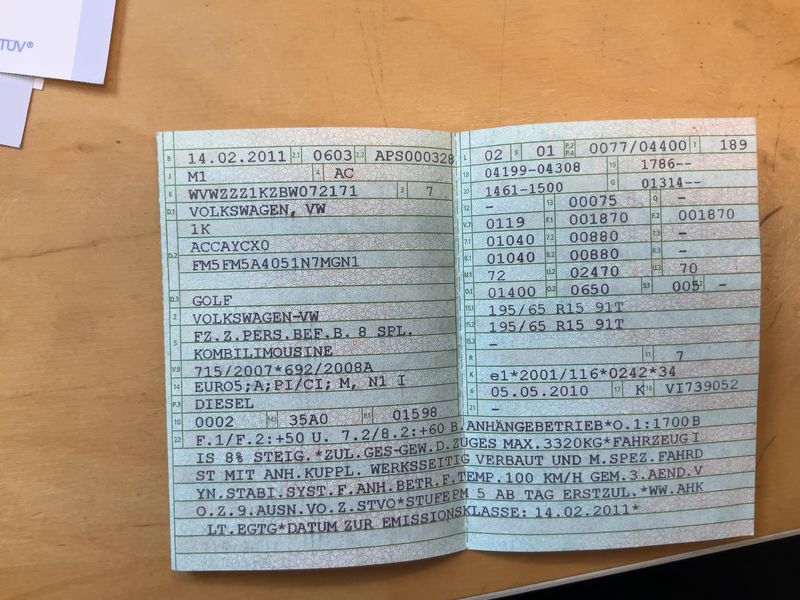 TÜV®
B 14.02.2011 2.1 0603 2.2 APS000328
J M1 4 AC
E WVWZZZ1KZBW072171 3 7
D.1 VOLKSWAGEN, VW
1K
D.2 ACCAYCX0
FM5FM5A4051N7MGN1
D.3 GOLF
2 VOLKSWAGEN-VW
5 FZ.Z.PERS.BEF.B. 8 SPL.
KOMBILIMOUSINE
V.9 715/2007*692/2008A
14 EURO5;A;PI/CI; M, N1 I
P.3 DIESEL
10 0002 14.1 35A0 P.1 01598
L 02 9 01 P.2 P.4 0077/04400 T 189
18 04199-04308 19 1786--
20 1461-1500 G 01314--
12 - 13 00075 Q -
V.7 0119 F.1 001870 F.2 001870
7.1 01040 7.2 00880 7.3 -
8.1 01040 8.2 00880 8.3 -
U.1 72 U.2 02470 U.3 70
O.1 01400 O.2 0650 S.1 005 S.2 -
15.1 195/65 R15 91T
15.2 195/65 R15 91T
15.3 -
R 11 7
K e1*2001/116*0242*34
6 05.05.2010 17 K 16 VI739052
21 -
22 F.1/F.2:+50 U. 7.2/8.2:+60 B.ANHÄNGEBETRIEB*O.1:1700B
IS 8% STEIG.*ZUL.GES-GEW.D.ZUGES MAX.3320KG*FAHRZEUG I
ST MIT ANH.KUPPL. WERKSSEITIG VERBAUT UND M.SPEZ.FAHRD
YN.STABI.SYST.F.ANH.BETR.F.TEMP.100 KM/H GEM.3.AEND.V
O.Z.9.AUSN.VO.Z.STVO*STUFE PM 5 AB TAG ERSTZUL.*WW.AHK
LT.EGTG*DATUM ZUR EMISSIONSKLASSE: 14.02.2011*